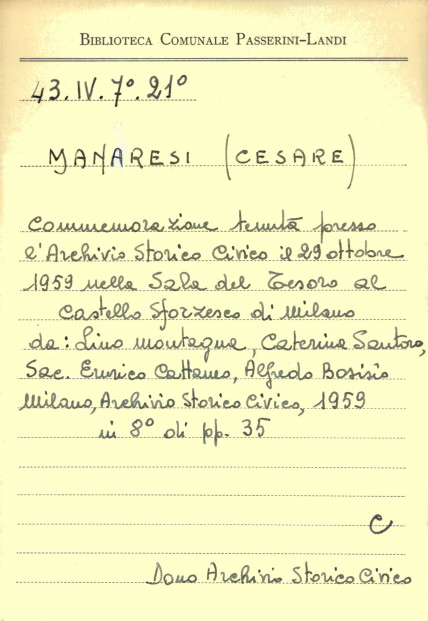 BIBLIOTECA COMUNALE PASSERINI-LANDI
43.IV.7º.21º
MANARESI (CESARE)
Commemorazione tenuta presso
l'Archivio Storico Civico il 29 ottobre
1959 nella Sala del Tesoro al
Castello Sforzesco di Milano
da: Lino Montagna, Caterina Santoro,
Sac. Enrico Cattaneo, Alfredo Bosisio
Milano, Archivio Storico Civico, 1959
in 8º di pp. 35
C
Dono Archivio Storico Civico